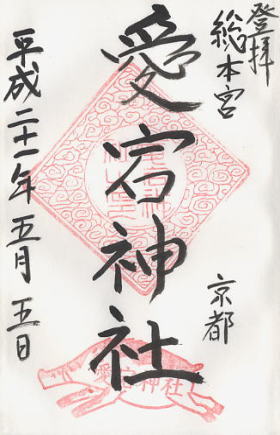 登拝
総本宮
京都
愛宕神社
平成二十一年五月五日
愛宕神社